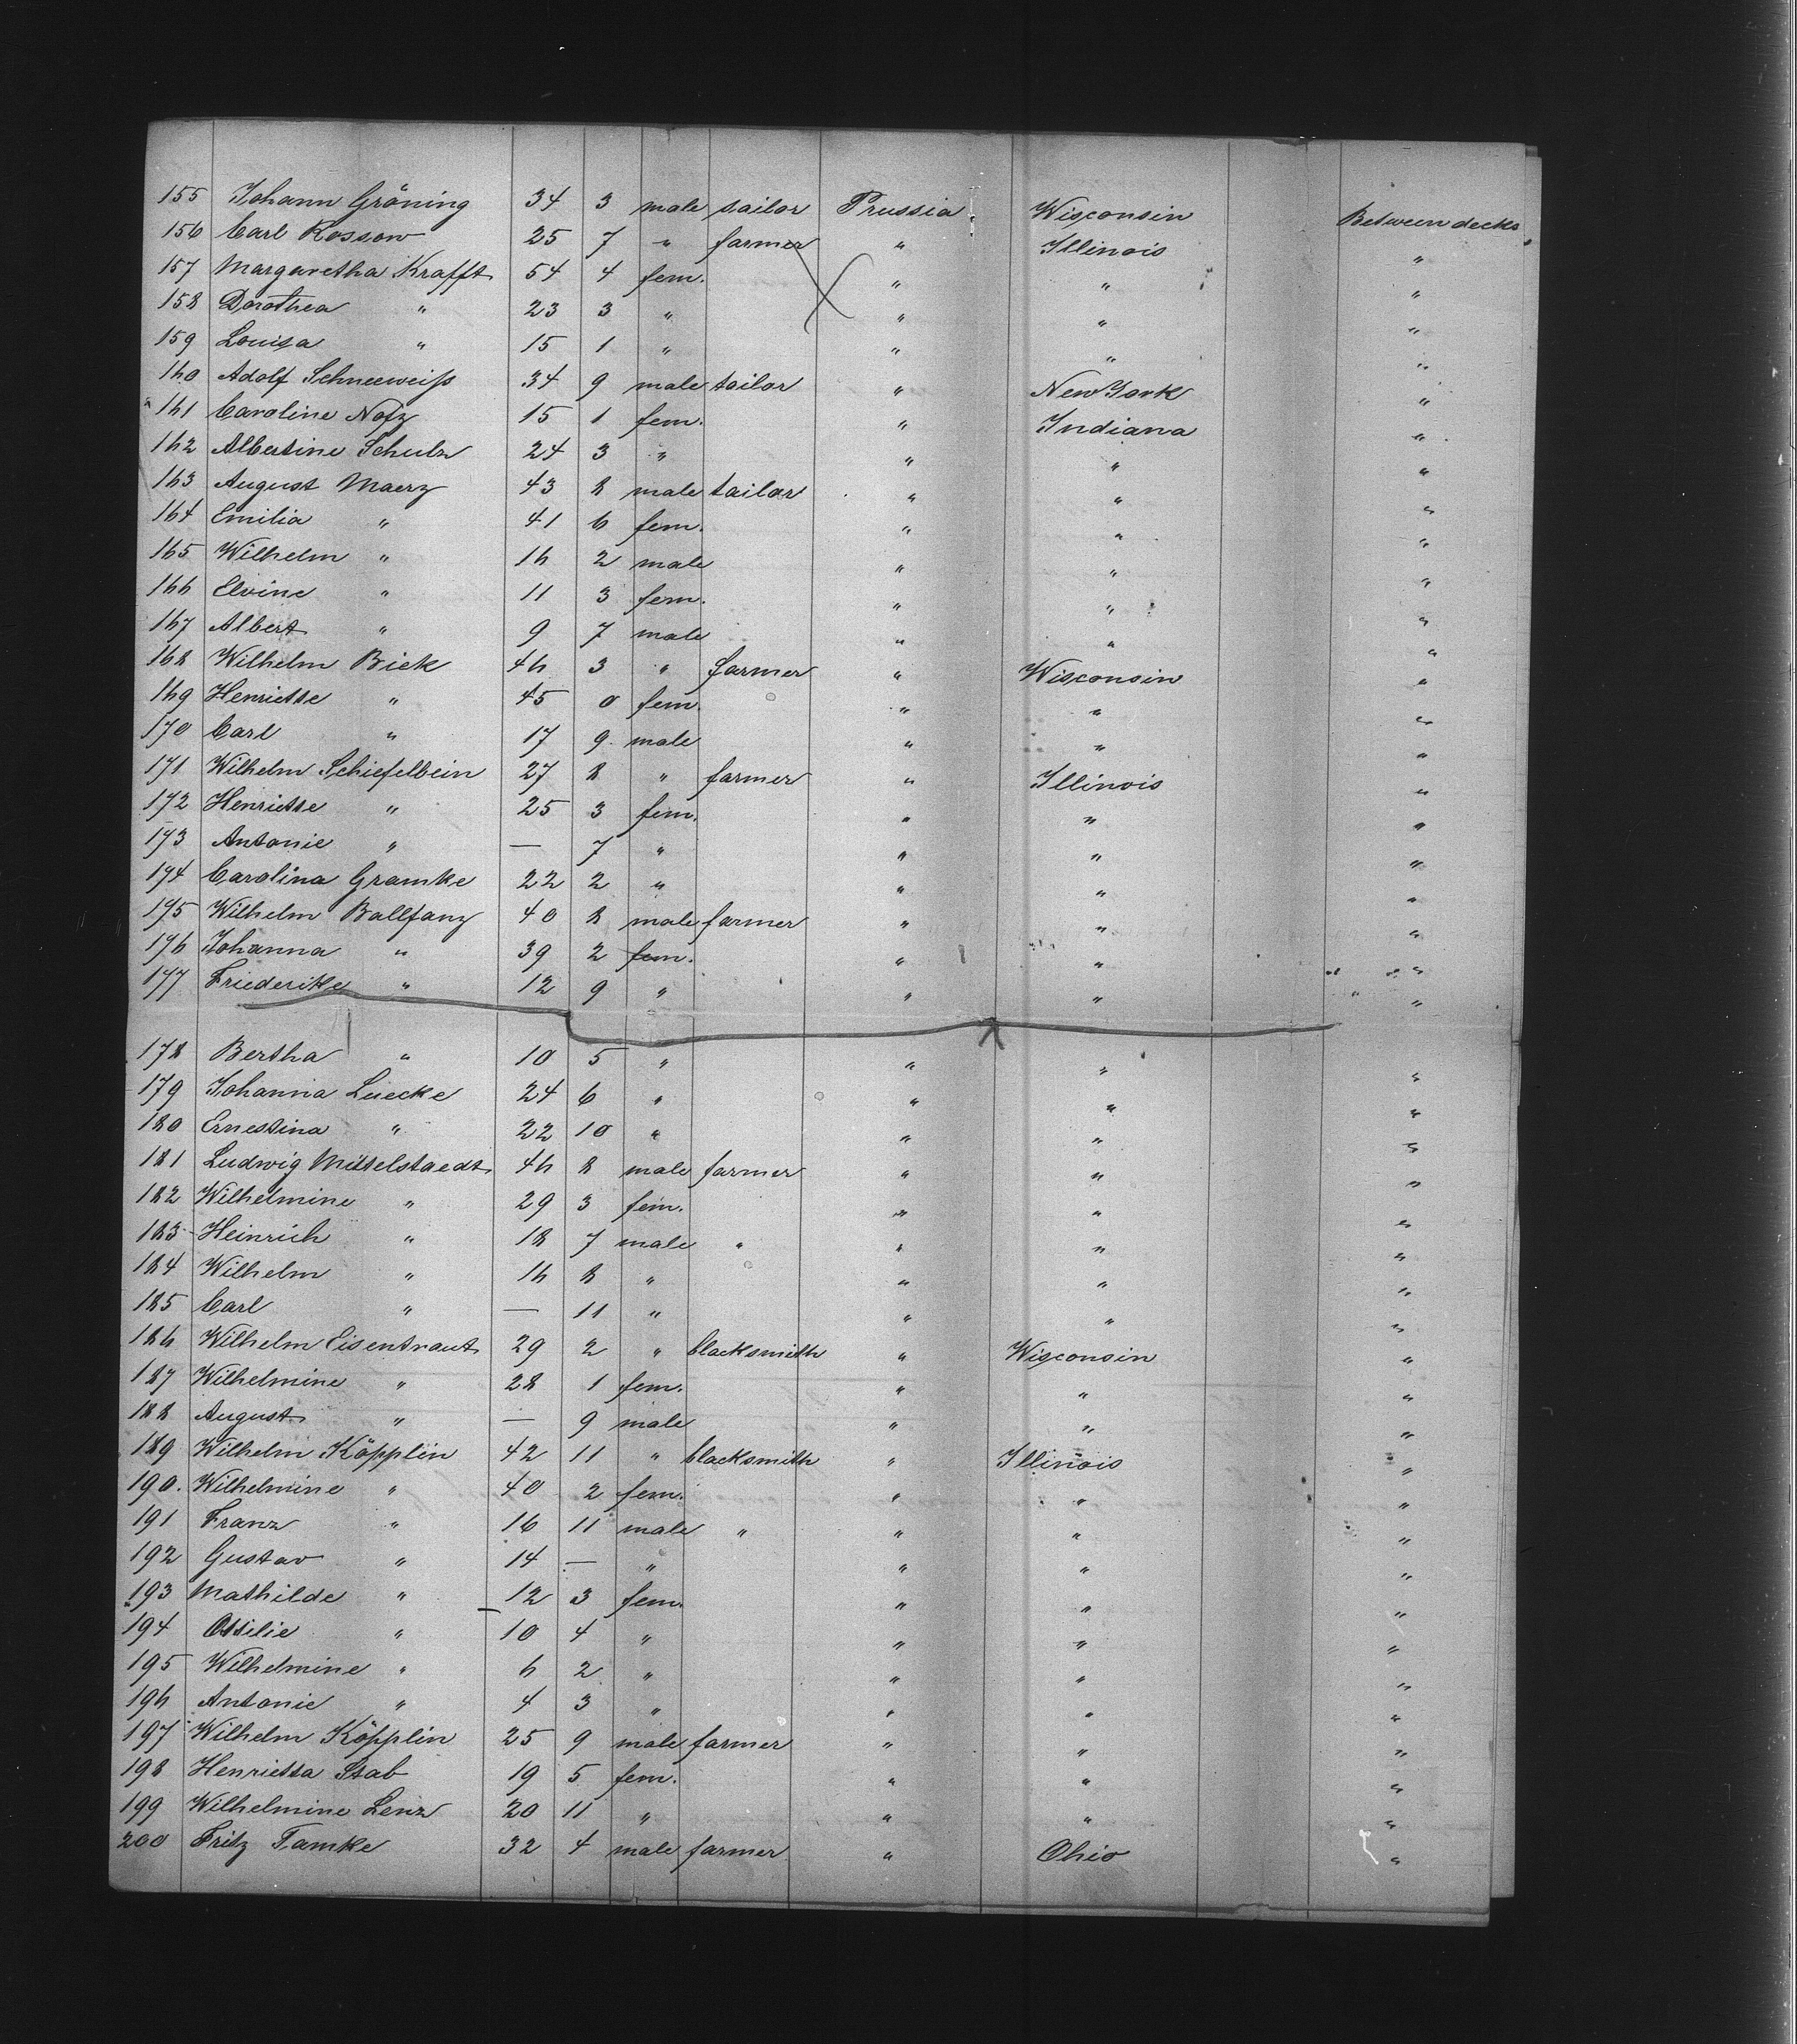 155 Johann Gröning 34 3 male sailor Prussia Wisconsin Between decks
156 Carl Kossow 25 7 " farmer " Illinois "
157 Margaretha Krafft 54 4 fem. " " "
158 Dorothea " 23 3 " " " "
159 Louisa " 15 1 " " " "
160 Adolf Schneeweiß 34 9 male tailor " New York "
161 Caroline Notz 15 1 fem. " Indiana "
162 Albertine Schulz 24 3 " " " "
163 August Maerz 43 8 male tailor " " "
164 Emilia " 41 6 fem. " " "
165 Wilhelm " 16 2 male " " "
166 Elvine " 11 3 fem. " " "
167 Albert " 9 7 male " " "
168 Wilhelm Biek 46 3 " farmer " Wisconsin "
169 Henriette " 45 0 fem. " " "
170 Carl " 17 9 male " " "
171 Wilhelm Schiefelbein 27 8 " farmer " Illinois "
172 Henriette " 25 3 fem. " " "
173 Antonie " — 7 " " " "
174 Carolina Gramke 22 2 " " " "
175 Wilhelm Ballfanz 40 8 male farmer " " "
176 Johanna " 39 2 fem. " " "
177 Friederike " 12 9 " " " "
178 Bertha " 10 5 " " " "
179 Johanna Luecke 24 6 " " " "
180 Ernestina " 22 10 " " " "
181 Ludwig Mittelstaedt 46 8 male farmer " " "
182 Wilhelmine " 29 3 fem. " " "
183 Heinrich " 18 7 male " " " "
184 Wilhelm " 16 8 " " " "
185 Carl " — 11 " " " "
186 Wilhelm Eisentraut 29 2 " blacksmith " Wisconsin "
187 Wilhelmine " 28 1 fem. " " "
188 August " — 9 male " " "
189 Wilhelm Köpplin 42 11 " blacksmith " Illinois "
190. Wilhelmine " 40 2 fem. " " "
191 Franz " 16 11 male " " " "
192 Gustav " 14 — " " " "
193 Mathilde " 12 3 fem. " " "
194 Ottilie " 10 4 " " " "
195 Wilhelmine " 6 2 " " " "
196 Antonie " 4 3 " " " "
197 Wilhelm Köpplin 25 9 male farmer " " "
198 Henrietta Stab 19 5 fem. " " "
199 Wilhelmine Lenz 20 11 " " " "
200 Fritz Tamke 32 4 male farmer " Ohio "